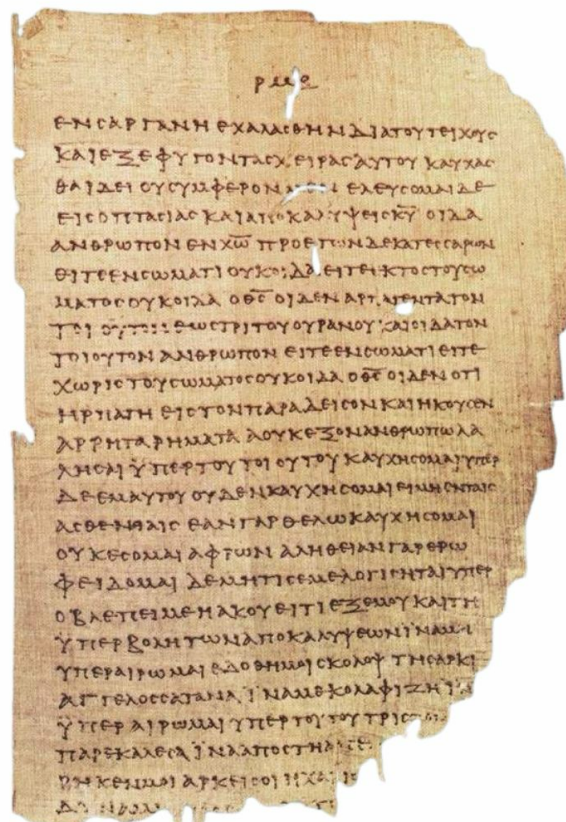 ρμε
ΕΝ ΣΑΡΓΑΝΗ ΕΧΑΛΑΣΘΗΝ ΔΙΑ ΤΟΥ ΤΕΙΧΟΥΣ
ΚΑΙ ΕΞΕΦΥΓΟΝ ΤΑΣ ΧΕΙΡΑΣ ΑΥΤΟΥ ΚΑΥΧΑΣ
ΘΑΙ ΔΕΙ ΟΥ ΣΥΜΦΕΡΟΝ ΜΕΝ ΕΛΕΥΣΟΜΑΙ ΔΕ
ΕΙΣ ΟΠΤΑΣΙΑΣ ΚΑΙ ΑΠΟΚΑΛΥΨΕΙΣ Κ̅Υ̅ ΟΙΔΑ
ΑΝΘΡΩΠΟΝ ΕΝ Χ̅Ω̅ ΠΡΟ ΕΤΩΝ ΔΕΚΑΤΕΣΣΑΡΩΝ
ΕΙΤΕ ΕΝ ΣΩΜΑΤΙ ΟΥΚ ΟΙΔΑ ΕΙΤΕ ΕΚΤΟΣ ΤΟΥ ΣΩ
ΜΑΤΟΣ ΟΥΚ ΟΙΔΑ Ο Θ̅Σ̅ ΟΙΔΕΝ ΑΡΠΑΓΕΝΤΑ ΤΟΝ
ΤΟΙΟΥΤΟΝ ΕΩΣ ΤΡΙΤΟΥ ΟΥΡΑΝΟΥ ΚΑΙ ΟΙΔΑ ΤΟΝ
ΤΟΙΟΥΤΟΝ ΑΝΘΡΩΠΟΝ ΕΙΤΕ ΕΝ ΣΩΜΑΤΙ ΕΙΤΕ
ΧΩΡΙΣ ΤΟΥ ΣΩΜΑΤΟΣ ΟΥΚ ΟΙΔΑ Ο Θ̅Σ̅ ΟΙΔΕΝ ΟΤΙ
ΗΡΠΑΓΗ ΕΙΣ ΤΟΝ ΠΑΡΑΔΕΙΣΟΝ ΚΑΙ ΗΚΟΥΣΕΝ
ΑΡΡΗΤΑ ΡΗΜΑΤΑ Α ΟΥΚ ΕΞΟΝ ΑΝΘΡΩΠΩ ΛΑ
ΛΗΣΑΙ ΫΠΕΡ ΤΟΥ ΤΟΙΟΥΤΟΥ ΚΑΥΧΗΣΟΜΑΙ ΥΠΕΡ
ΔΕ ΕΜΑΥΤΟΥ ΟΥΔΕΝ ΚΑΥΧΗΣΟΜΑΙ ΕΙ ΜΗ ΕΝ ΤΑΙΣ
ΑΣΘΕΝΕΙΑΙΣ ΕΑΝ ΓΑΡ ΘΕΛΩ ΚΑΥΧΗΣΟΜΑΙ
ΟΥΚ ΕΣΟΜΑΙ ΑΦΡΩΝ ΑΛΗΘΕΙΑΝ ΓΑΡ ΕΡΩ
ΦΕΙΔΟΜΑΙ ΔΕ ΜΗ ΤΙΣ ΕΜΕ ΛΟΓΙΣΗΤΑΙ ΥΠΕΡ
Ο ΒΛΕΠΕΙ ΜΕ Η ΑΚΟΥΕΙ ΤΙ ΕΞ ΕΜΟΥ ΚΑΙ ΤΗ
ΫΠΕΡΒΟΛΗ ΤΩΝ ΑΠΟΚΑΛΥΨΕΩΝ ΪΝΑ ΜΗ
ΥΠΕΡΑΙΡΩΜΑΙ ΕΔΟΘΗ ΜΟΙ ΣΚΟΛΟΨ ΤΗ ΣΑΡΚΙ
ΑΓΓΕΛΟΣ ΣΑΤΑΝΑ ΪΝΑ ΜΕ ΚΟΛΑΦΙΖΗ ΪΝΑ
ΫΠΕΡΑΙΡΩΜΑΙ ΥΠΕΡ ΤΟΥΤΟΥ ΤΡΙΣ
ΠΑΡΕΚΑΛΕΣΑ ΪΝΑ ΑΠΟΣΤΗ
ΡΗΚΕΝ ΜΟΙ ΑΡΚΕΙ ΣΟΙ Η ΧΑΡΙΣ